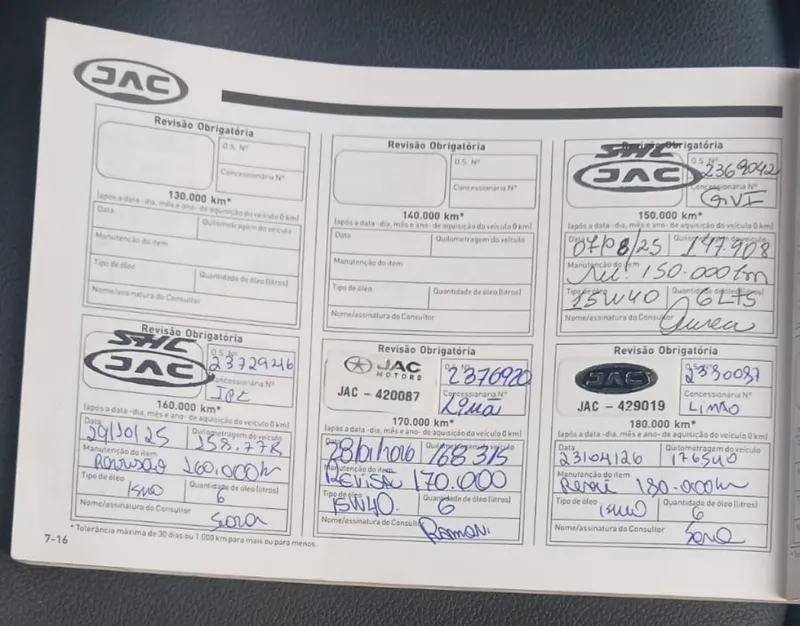 JAC
Revisão Obrigatória
O.S. Nº
Concessionária Nº
130.000 km*
(após a data -dia, mês e ano- de aquisição do veículo 0 km)
Data
Quilometragem do veículo
Manutenção do item
Tipo de óleo
Quantidade de óleo (litros)
Nome/assinatura do Consultor
Revisão Obrigatória
O.S. Nº
Concessionária Nº
140.000 km*
(após a data -dia, mês e ano- de aquisição do veículo 0 km)
Data
Quilometragem do veículo
Manutenção do item
Tipo de óleo
Quantidade de óleo (litros)
Nome/assinatura do Consultor
Revisão Obrigatória
SHC
JAC
O.S. Nº
2369042
Concessionária Nº
GVI
150.000 km*
(após a data -dia, mês e ano- de aquisição do veículo 0 km)
Data
Quilometragem do veículo
07/08/25 147.908
Manutenção do item
150.000 km
Tipo de óleo
Quantidade de óleo (litros)
15W40
Nome/assinatura do Consultor
Revisão Obrigatória
SHC
JAC
O.S. Nº
2372946
Concessionária Nº
160.000 km*
(após a data -dia, mês e ano- de aquisição do veículo 0 km)
Data
Quilometragem do veículo
29/10/25 158.778
Manutenção do item
Revisão 160.000 km
Tipo de óleo
Quantidade de óleo (litros)
6
Nome/assinatura do Consultor
Revisão Obrigatória
JAC
MOTORS
JAC - 420087
O.S. Nº
2376920
Concessionária Nº
170.000 km*
(após a data -dia, mês e ano- de aquisição do veículo 0 km)
Data
Quilometragem do veículo
168315
Manutenção do item
REVISÃO 170.000
Tipo de óleo
Quantidade de óleo (litros)
15W40. 6
Nome/assinatura do Consultor
Ramon.
Revisão Obrigatória
JAC
JAC - 429019
O.S. Nº
2380087
Concessionária Nº
LIMÃO
180.000 km*
(após a data -dia, mês e ano- de aquisição do veículo 0 km)
Data
Quilometragem do veículo
23/04/26 176540
Manutenção do item
180.000 km
Tipo de óleo
Quantidade de óleo (litros)
6
Nome/assinatura do Consultor
* Tolerância máxima de 30 dias ou 1.000 km para mais ou para menos.
7-16